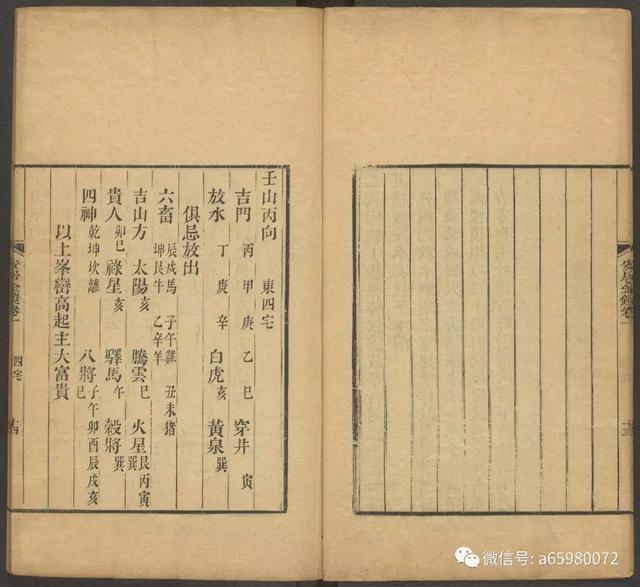 安居金鏡卷一
十三
壬山丙向　東四宅
吉門　丙　甲　庚　乙　巳　穿井　寅
放水　丁　庚　辛　白虎亥　黃泉巽
俱忌放出
六畜　辰戌馬　子午雞　丑未猪　坤艮牛　乙辛羊
吉山方　太陽亥　騰雲巳　火星艮丙寅巽
貴人卯巳　祿星亥　驛馬午　穀將巽
四神乾坤坎離　八將子午卯酉辰戌亥巳
以上峯巒高起主大富貴
安居金鏡卷一
四宅
十四
微信号: a65980072